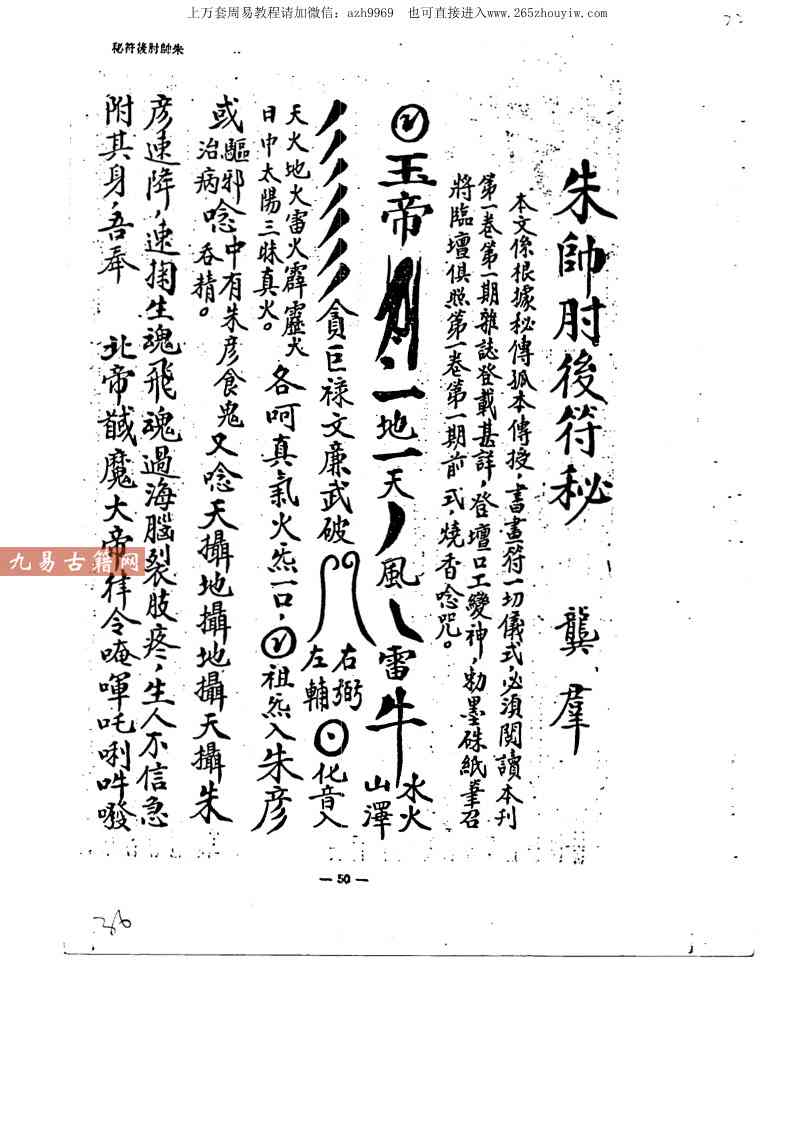 上万套周易教程请加微信：azh9969　也可直接进入www.265zhouyiw.com
朱帥肘後符秘
朱帥肘後符秘　龔羣
本文係根據秘傳孤本傳授，書畫符一切儀式，必須閱讀本刊
第一卷第一期雜誌登載甚詳，登壇口工變神，勅墨硃紙筆召
將臨壇俱照第一卷第一期前式，燒香唸咒。
玉帝　一地一天　風　雷　牛　水火
山澤
貪巨禄文廉武破　右弼
左輔　化音入
天火地火雷火霹靂火
日中太陽三昧真火。各呵真氣火炁一口，祖炁入朱彥
或驅邪
治病唸中有朱彥食鬼
吞精。又唸天攝地攝地攝天攝朱
彥速降，速掏生魂飛魂過海腦裂肢疼，生人不信急
附其身，吾奉　北帝馘魔大帝律令唵㖇吒唎吽㗶
— 50 —
36
九易古籍网